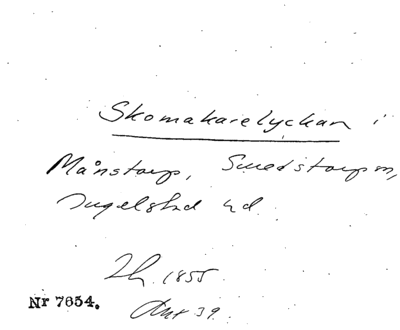 Skomakarelyckan i
Månstorp, Smedstorpsn,
Ingelstad hd.
Lh. 1855
Nr 7654. Akt 39.